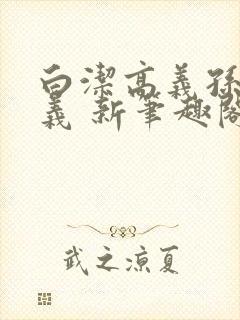 白潔高義孫
義 新筆趣閣
武之涼夏